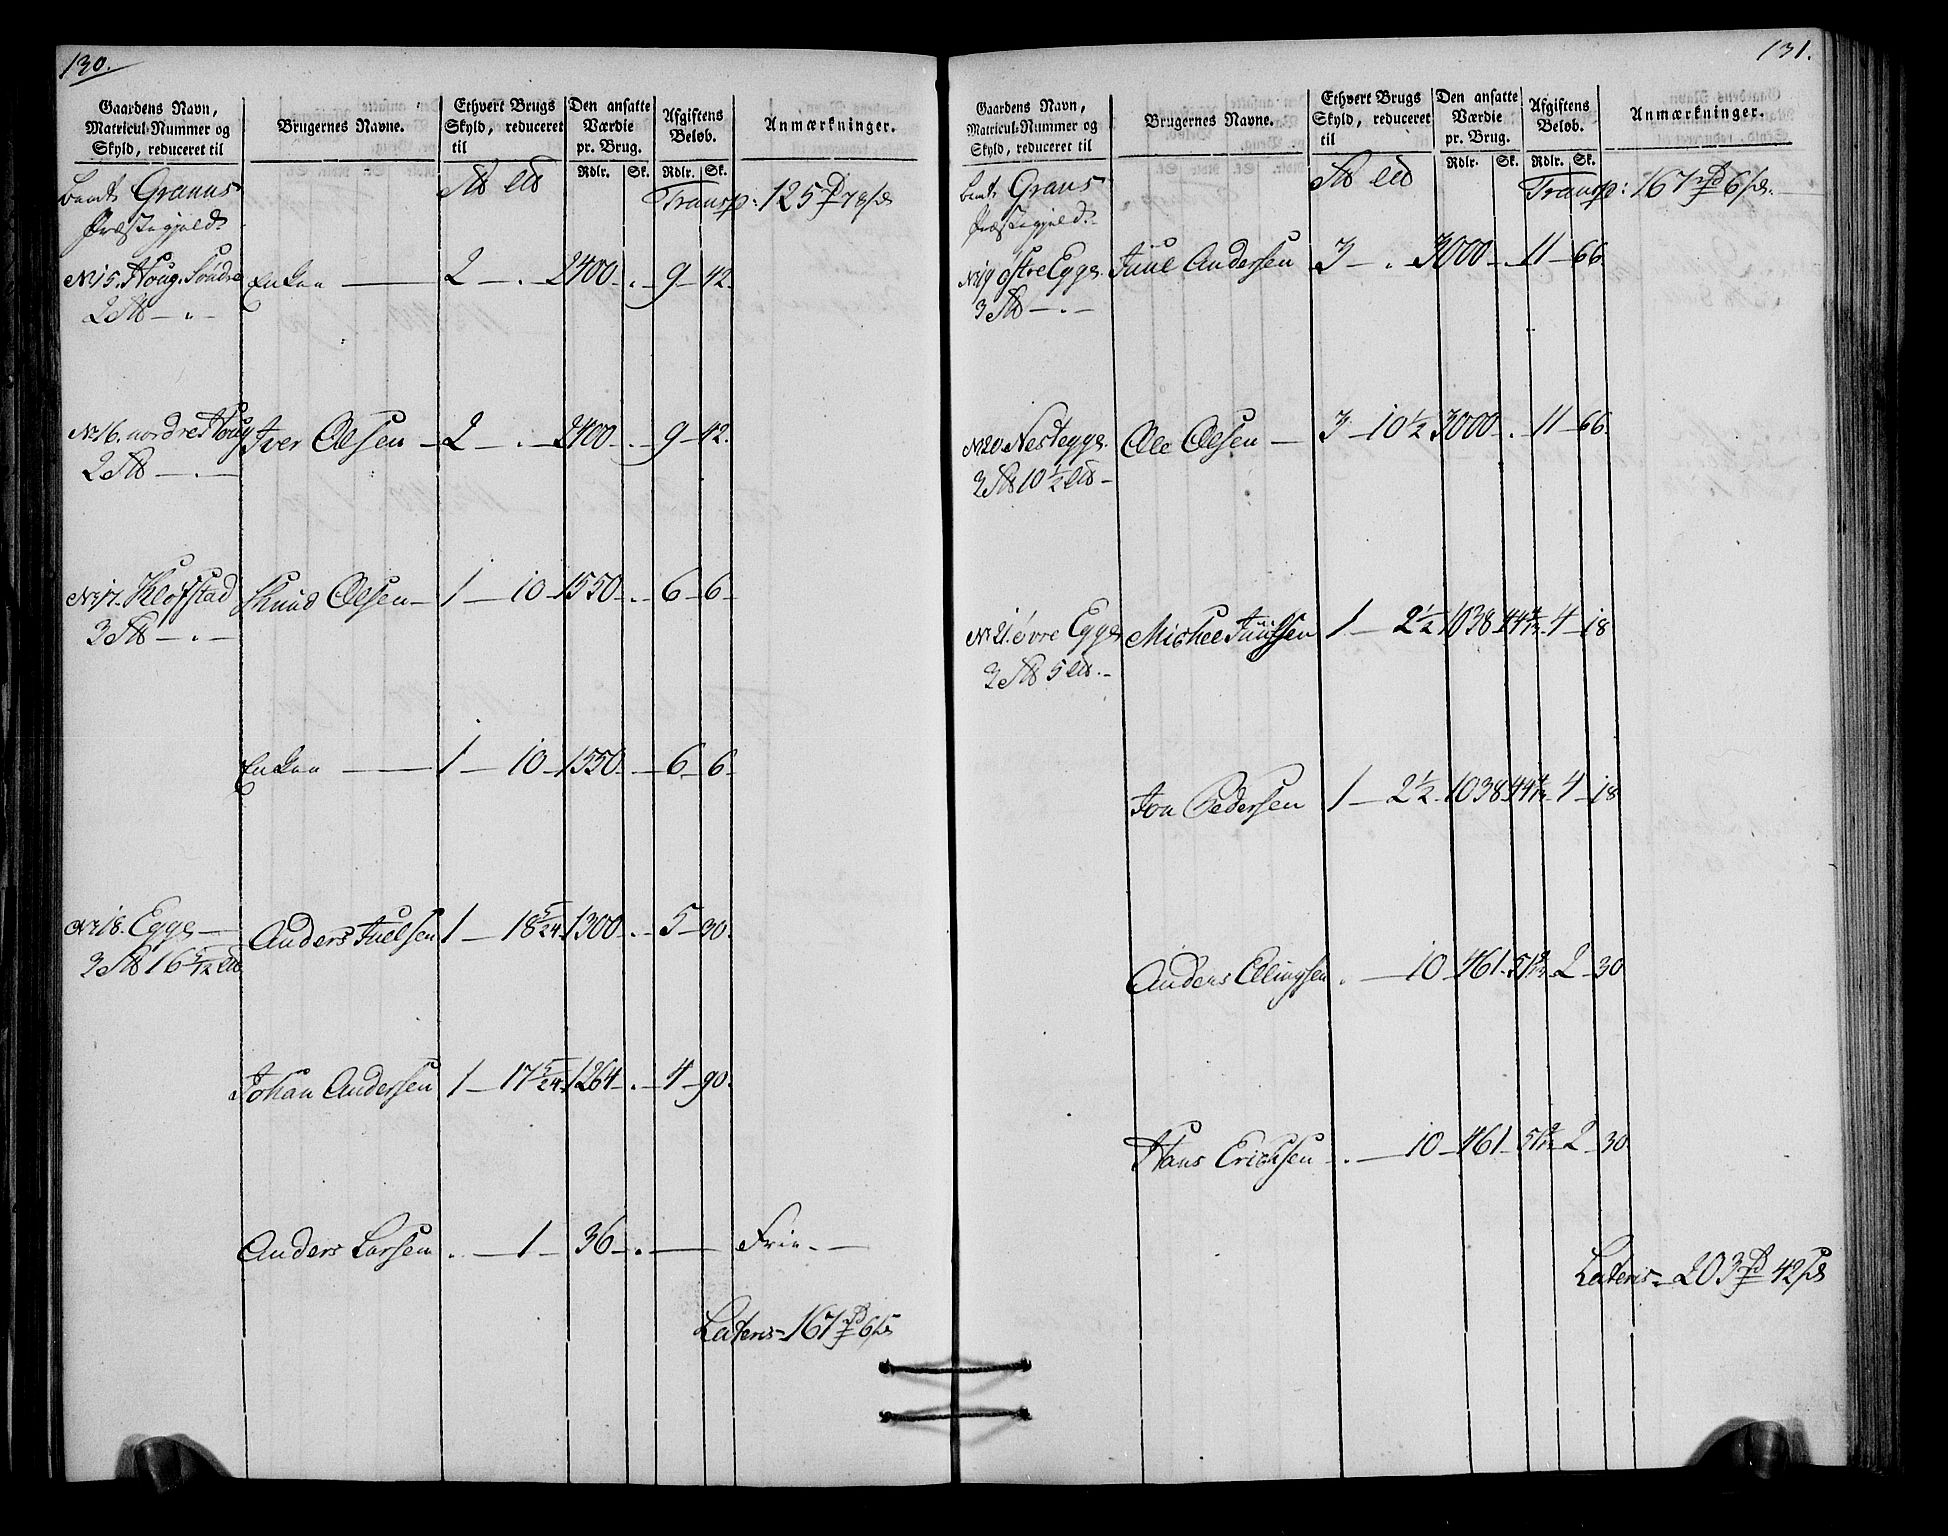 130.
Gaardens Navn, Matricul-Nummer og Skyld, reduceret til
Brugernes Navne.
Ethvert Brugs Skyld, reduceret til
Den ansatte Værdie pr. Brug.
Afgiftens Beløb.
Anmærkninger.
Rdlr. Sk. Rdlr. Sk.
Granns Præstegjeld
Transp: 125 78
No 15. Houg. Søndre Enken — 2 — . — 2400 — . — 9 — 42.
2 — " —
No 16. nordre Houg Iver Olsen — 2 — . — 2400 — . — 9 — 42.
2 — . —
No 17. Kløfstad Knud Olsen — 1 — 10 — 1550 — . — 6 — 6 —
3 — . —
Enken — 1 — 10 — 1550 — 6 — 6 —
No 18. Egge — Anders Juelsen 1 — 18 5/24 — 1300 — . — 5 — 30.
3 16 5/12
Johan Andersen 1 — 17 5/24 — 1264 — . — 4 — 90.
Anders Larsen . — 1 — 36 — . — Frie. —
Lateris — 167 6
131.
Gaardens Navn, Matricul-Nummer og Skyld, reduceret til
Brugernes Navne.
Ethvert Brugs Skyld, reduceret til
Den ansatte Værdie pr. Brug.
Afgiftens Beløb.
Anmærkninger.
Rdlr. Sk. Rdlr. Sk.
Grans Præstegjeld
Transp: 167 6
No 19 østre Egge. Juul Andersen 3 — . — 3000 — . — 11 — 66.
3 — . —
No 20 Nestegge. Ole Olsen — 3 — 10 1/2 3000 — . — 11 — 66.
3 10 1/2 —
No 21. øvre Egge Michel Juulsen 1 — 2 1/2 1038 44 — 4 — 18
3 5
Jon Pedersen 1 — 2 1/2 — 1038 44 — 4 — 18
Anders Ellingsen . — 10 — 461 — 51 — 2 — 30
Hans Erichsen — . — 10 — 461 — 51 — 2 — 30
Lateris — 203 42